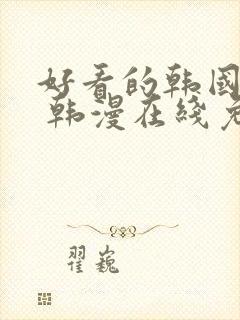 好看的韩国
韩漫在线免
翟巍